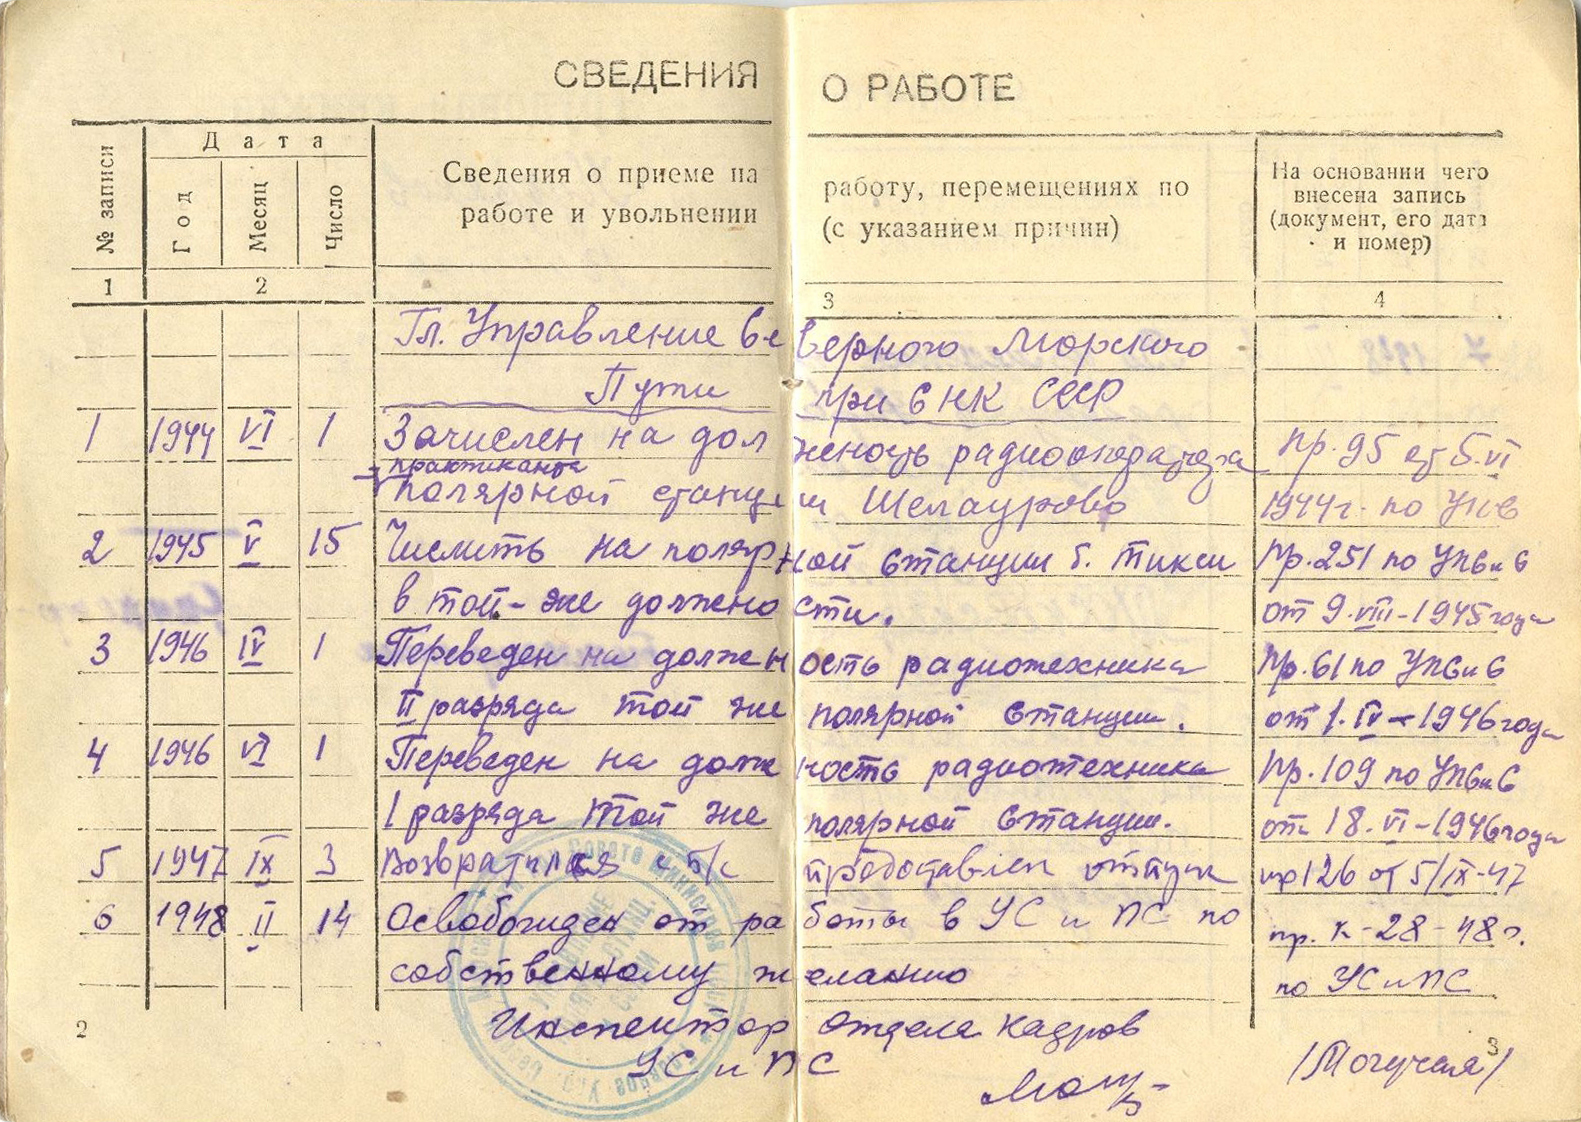 СВЕДЕНИЯ О РАБОТЕ
№ записи
Дата
Год
Месяц
Число
Сведения о приеме на работу, перемещениях по
работе и увольнении (с указанием причин)
На основании чего
внесена запись
(документ, его дата
и номер)
1 2 3 4
Гл. Управление Северного Морского
Пути при СНК СССР
1 1944 VI 1 Зачислен на должность радиооператора Пр. 95 от 5.VI
практиканта
полярной станции Шелаурово 1944г. по УПС
2 1945 V 15 Числить на полярной станции б. Тикси Пр. 251 по УПСиС
в той-же должности. от 9.VIII-1945 года
3 1946 IV 1 Переведен на должность радиотехника Пр. 61 по УПСиС
II разряда той же полярной станции. от 1.IV-1946 года
4 1946 VI 1 Переведен на должность радиотехника Пр. 109 по УПСиС
I разряда той же полярной станции. от 18.VI-1946 года
5 1947 IX 3 Возвратился с п/с предоставлен отпуск пр 126 от 5/IX-47
6 1948 II 14 Освобожден от работы в УС и ПС по пр. К-28-48г.
собственному желанию по УСиПС
Инспектор отдела кадров
УС и ПС
/Могучая/
2 3